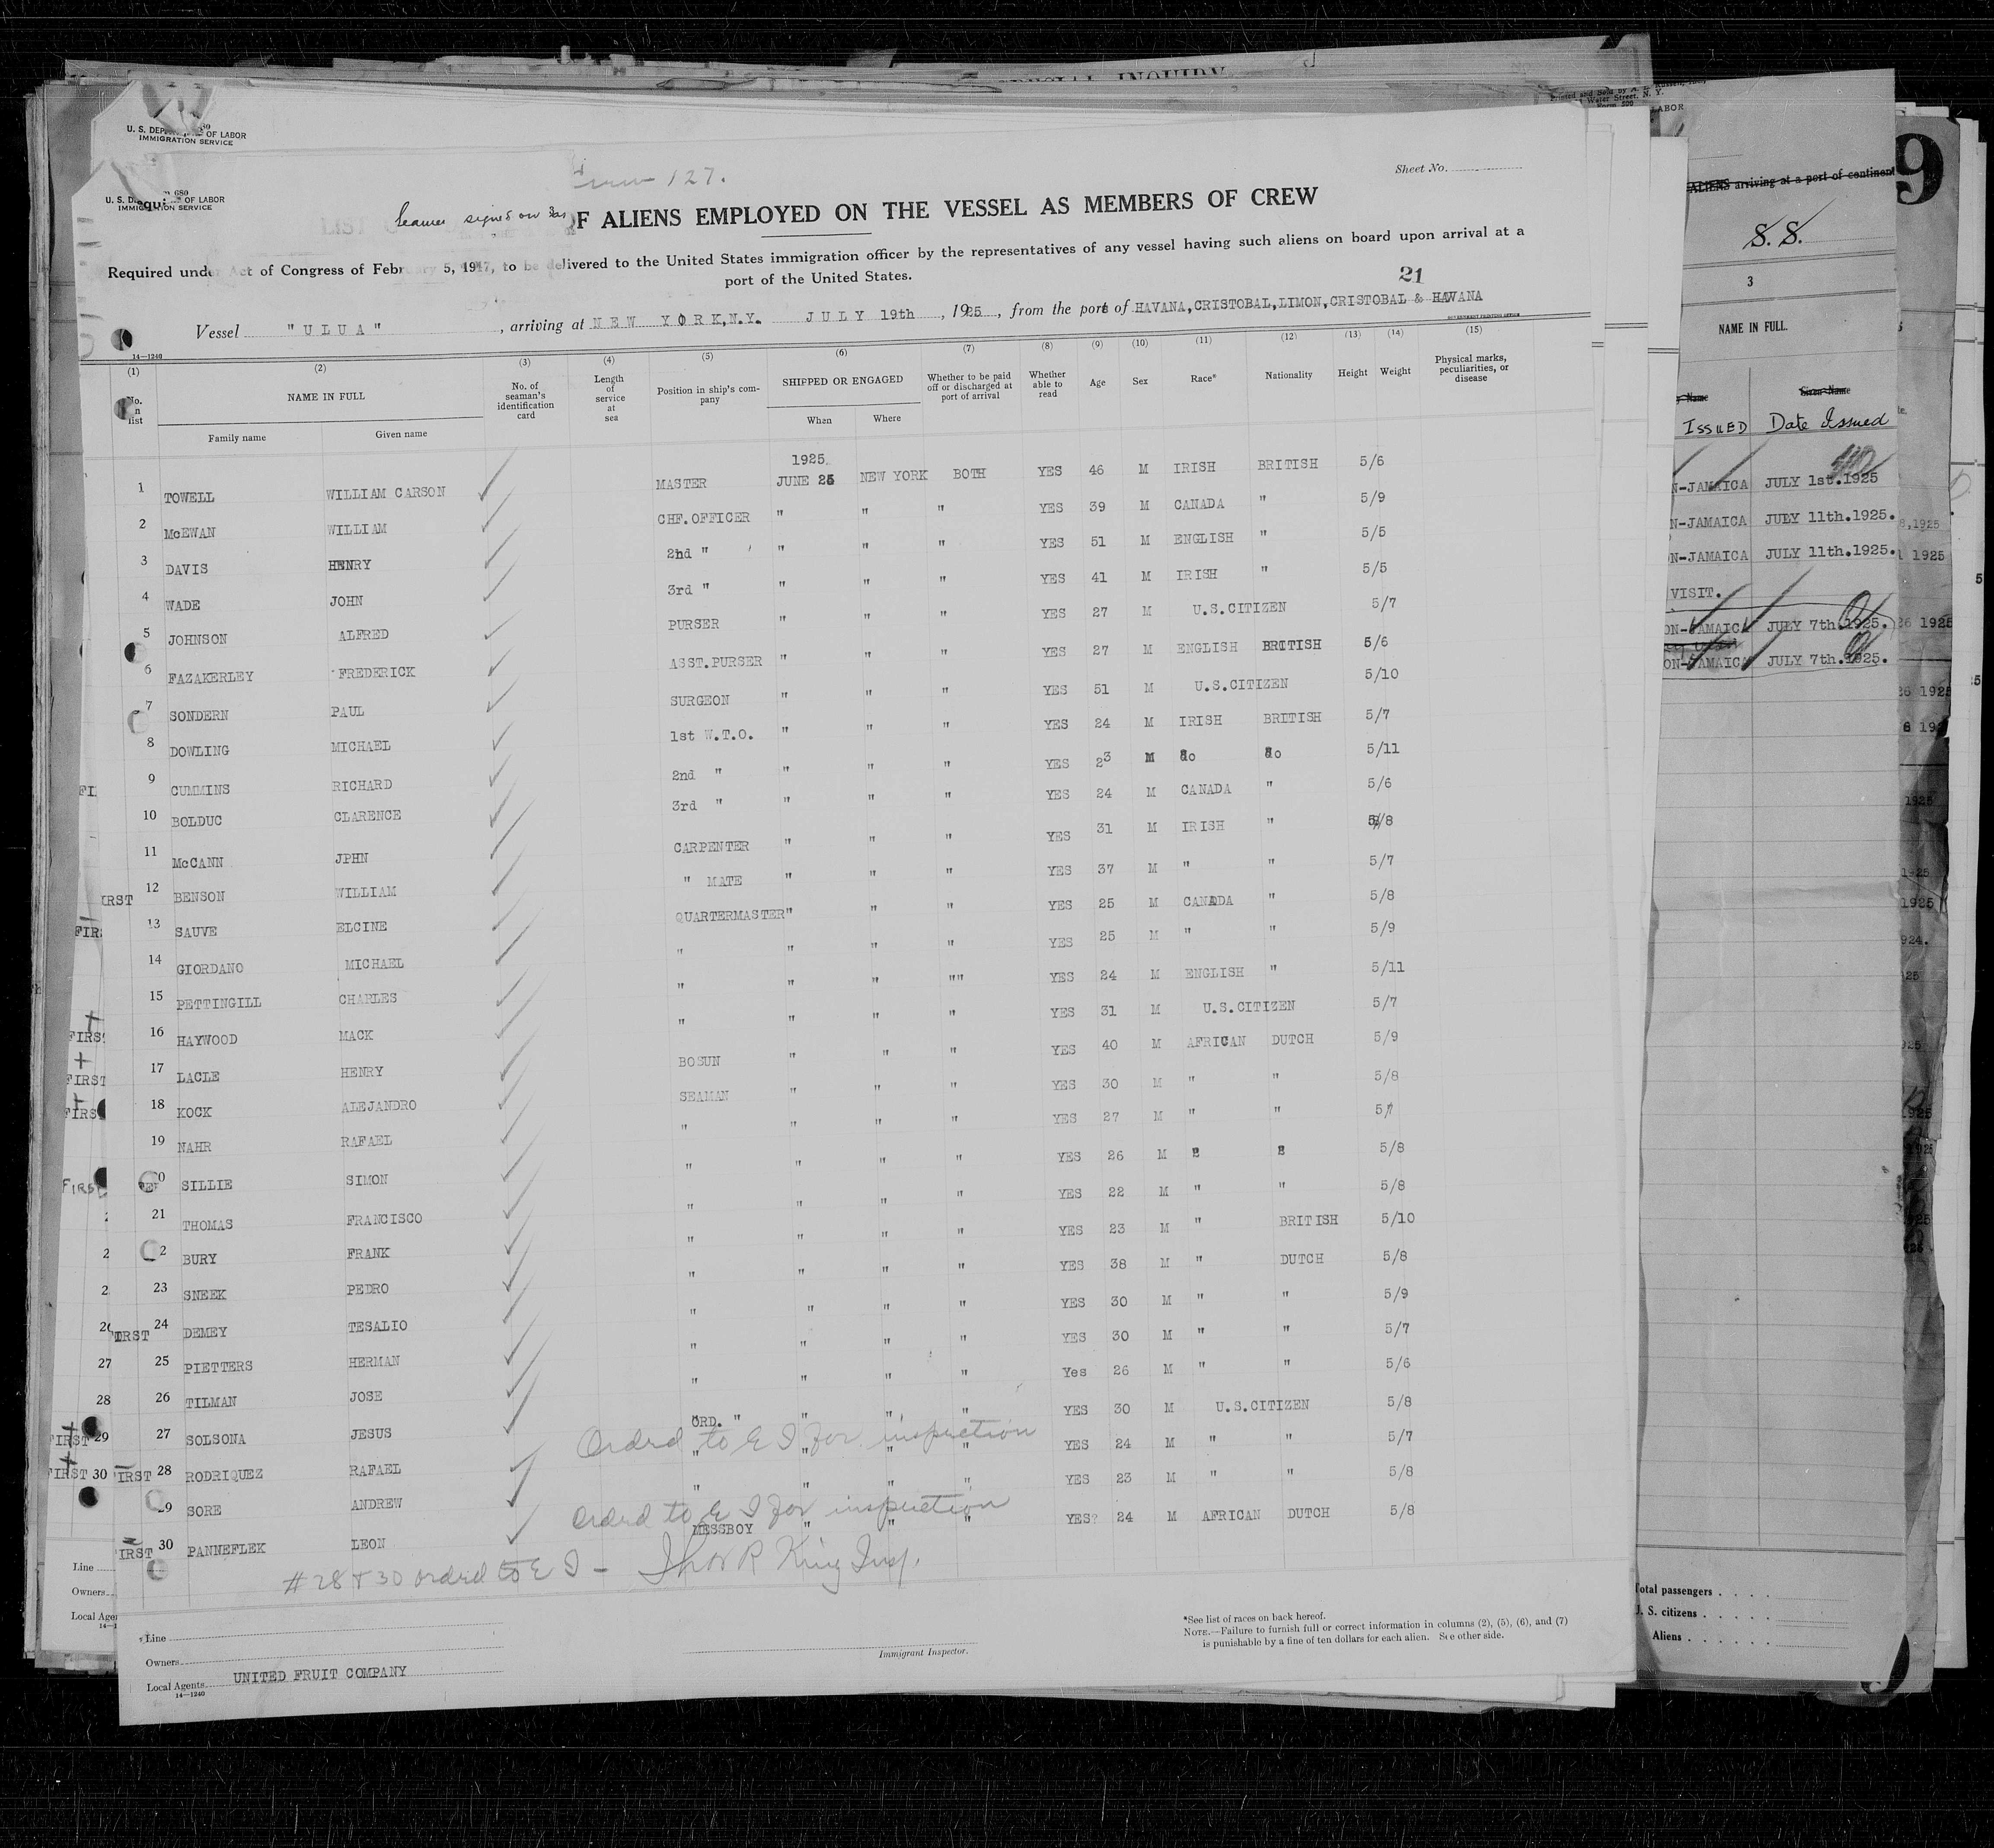 SPECIAL INQUIRY
U. S. DEP OF LABOR
IMMIGRATION SERVICE
680
U. S. D OF LABOR
IMMIGRATION SERVICE
127.
Sheet No.
signed on
OF ALIENS EMPLOYED ON THE VESSEL AS MEMBERS OF CREW
Required under Act of Congress of February 5, 1917, to be delivered to the United States immigration officer by the representatives of any vessel having such aliens on board upon arrival at a
port of the United States.
21
Vessel "ULUA", arriving at NEW YORK, N.Y. JULY 19th, 1925, from the port of HAVANA, CRISTOBAL, LIMON, CRISTOBAL & HAVANA
14—1240
GOVERNMENT PRINTING OFFICE
(1) (2) (3) (4) (5) (6) (7) (8) (9) (10) (11) (12) (13) (14) (15)
No. on list NAME IN FULL No. of seaman's identification card Length of service at sea Position in ship's company SHIPPED OR ENGAGED Whether to be paid off or discharged at port of arrival Whether able to read Age Sex Race* Nationality Height Weight Physical marks, peculiarities, or disease
Family name Given name When Where
1925.
1 TOWELL WILLIAM CARSON MASTER JUNE 26 NEW YORK BOTH YES 46 M IRISH BRITISH 5/6
2 McEWAN WILLIAM CHF.OFFICER " " " YES 39 M CANADA " 5/9
3 DAVIS HENRY 2nd " " " " YES 51 M ENGLISH " 5/5
4 WADE JOHN 3rd " " " " YES 41 M IRISH " 5/5
5 JOHNSON ALFRED PURSER " " " YES 27 M U.S.CITIZEN 5/7
6 FAZAKERLEY FREDERICK ASST.PURSER " " " YES 27 M ENGLISH BRITISH 5/6
7 SONDERN PAUL SURGEON " " " YES 51 M U.S.CITIZEN 5/10
8 DOWLING MICHAEL 1st W.T.O. " " " YES 24 M IRISH BRITISH 5/7
9 CUMMINS RICHARD 2nd " " " " YES 23 M do do 5/11
10 BOLDUC CLARENCE 3rd " " " " YES 24 M CANADA " 5/6
11 McCANN JPHN CARPENTER " " " YES 31 M IRISH " 5/8
12 BENSON WILLIAM " MATE " " " YES 37 M " " 5/7
13 SAUVE ELCINE QUARTERMASTER " " " YES 25 M CANADA " 5/8
14 GIORDANO MICHAEL " " " " YES 25 M " " 5/9
15 PETTINGILL CHARLES " " " "" YES 24 M ENGLISH " 5/11
16 HAYWOOD MACK " " " " YES 31 M U.S.CITIZEN 5/7
17 LACLE HENRY BOSUN " " " YES 40 M AFRICAN DUTCH 5/9
18 KOCK ALEJANDRO SEAMAN " " " YES 30 M " " 5/8
19 NAHR RAFAEL " " " " YES 27 M " " 5/7
20 SILLIE SIMON " " " " YES 26 M " " 5/8
21 THOMAS FRANCISCO " " " " YES 22 M " " 5/8
22 BURY FRANK " " " " YES 23 M " BRITISH 5/10
23 SNEEK PEDRO " " " " YES 38 M " DUTCH 5/8
24 DEMEY TESALIO " " " " YES 30 M " " 5/9
25 PIETTERS HERMAN " " " " YES 30 M " " 5/7
26 TILMAN JOSE " " " " Yes 26 M " " 5/6
27 SOLSONA JESUS ORD. " " " " YES 30 M U.S.CITIZEN 5/8
Ordrd to E I for inspection
28 RODRIQUEZ RAFAEL " " " " YES 24 M " " 5/7
29 SORE ANDREW " " " " YES 23 M " " 5/8
Ordrd to E I for inspection
30 PANNEFLEK LEON MESSBOY " " " YES? 24 M AFRICAN DUTCH 5/8
#28 & 30 ordrd to E I - Thos R King Insp.
Line
Owners
Local Agents UNITED FRUIT COMPANY
14—1240
Immigrant Inspector.
*See list of races on back hereof.
NOTE.—Failure to furnish full or correct information in columns (2), (5), (6), and (7)
is punishable by a fine of ten dollars for each alien. See other side.
Line
Owners
Local Age
FIRST 29
FIRST 30
27
28
Printed and Sold by
Water Street, N. Y.
LABOR
ALIENS arriving at a port of continent
9
S. S.
3
NAME IN FULL.
Given Name
ISSUED Date Issued
N-JAMAICA JULY 1st.1925
N-JAMAICA JULY 11th.1925.
N-JAMAICA JULY 11th.1925.
VISIT.
ON-JAMAICA JULY 7th.1925.
ON-JAMAICA JULY 7th.1925.
Total passengers
U. S. citizens
Aliens